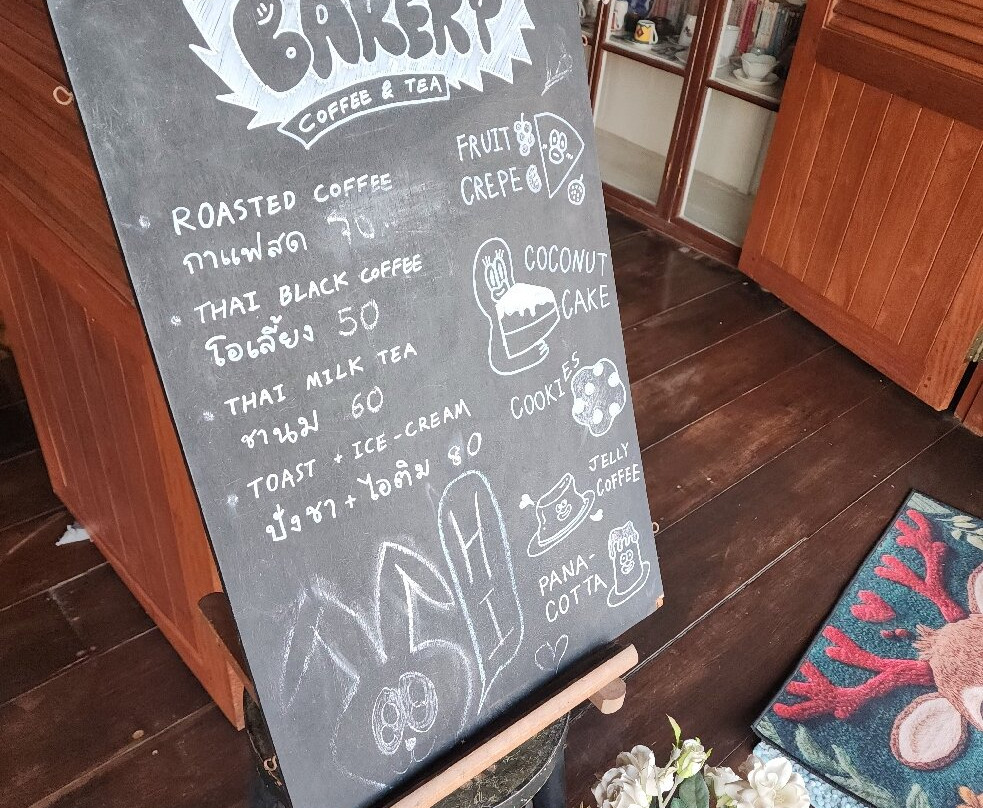 BAKERY
COFFEE & TEA
ROASTED COFFEE
กาแฟสด 70.-
THAI BLACK COFFEE
โอเลี้ยง 50
THAI MILK TEA
ชานม 60
TOAST + ICE-CREAM
ปั่งชา + ไอติม 80
HI
FRUIT
CREPE
COCONUT
CAKE
COOKIES
JELLY
COFFEE
PANA-
COTTA